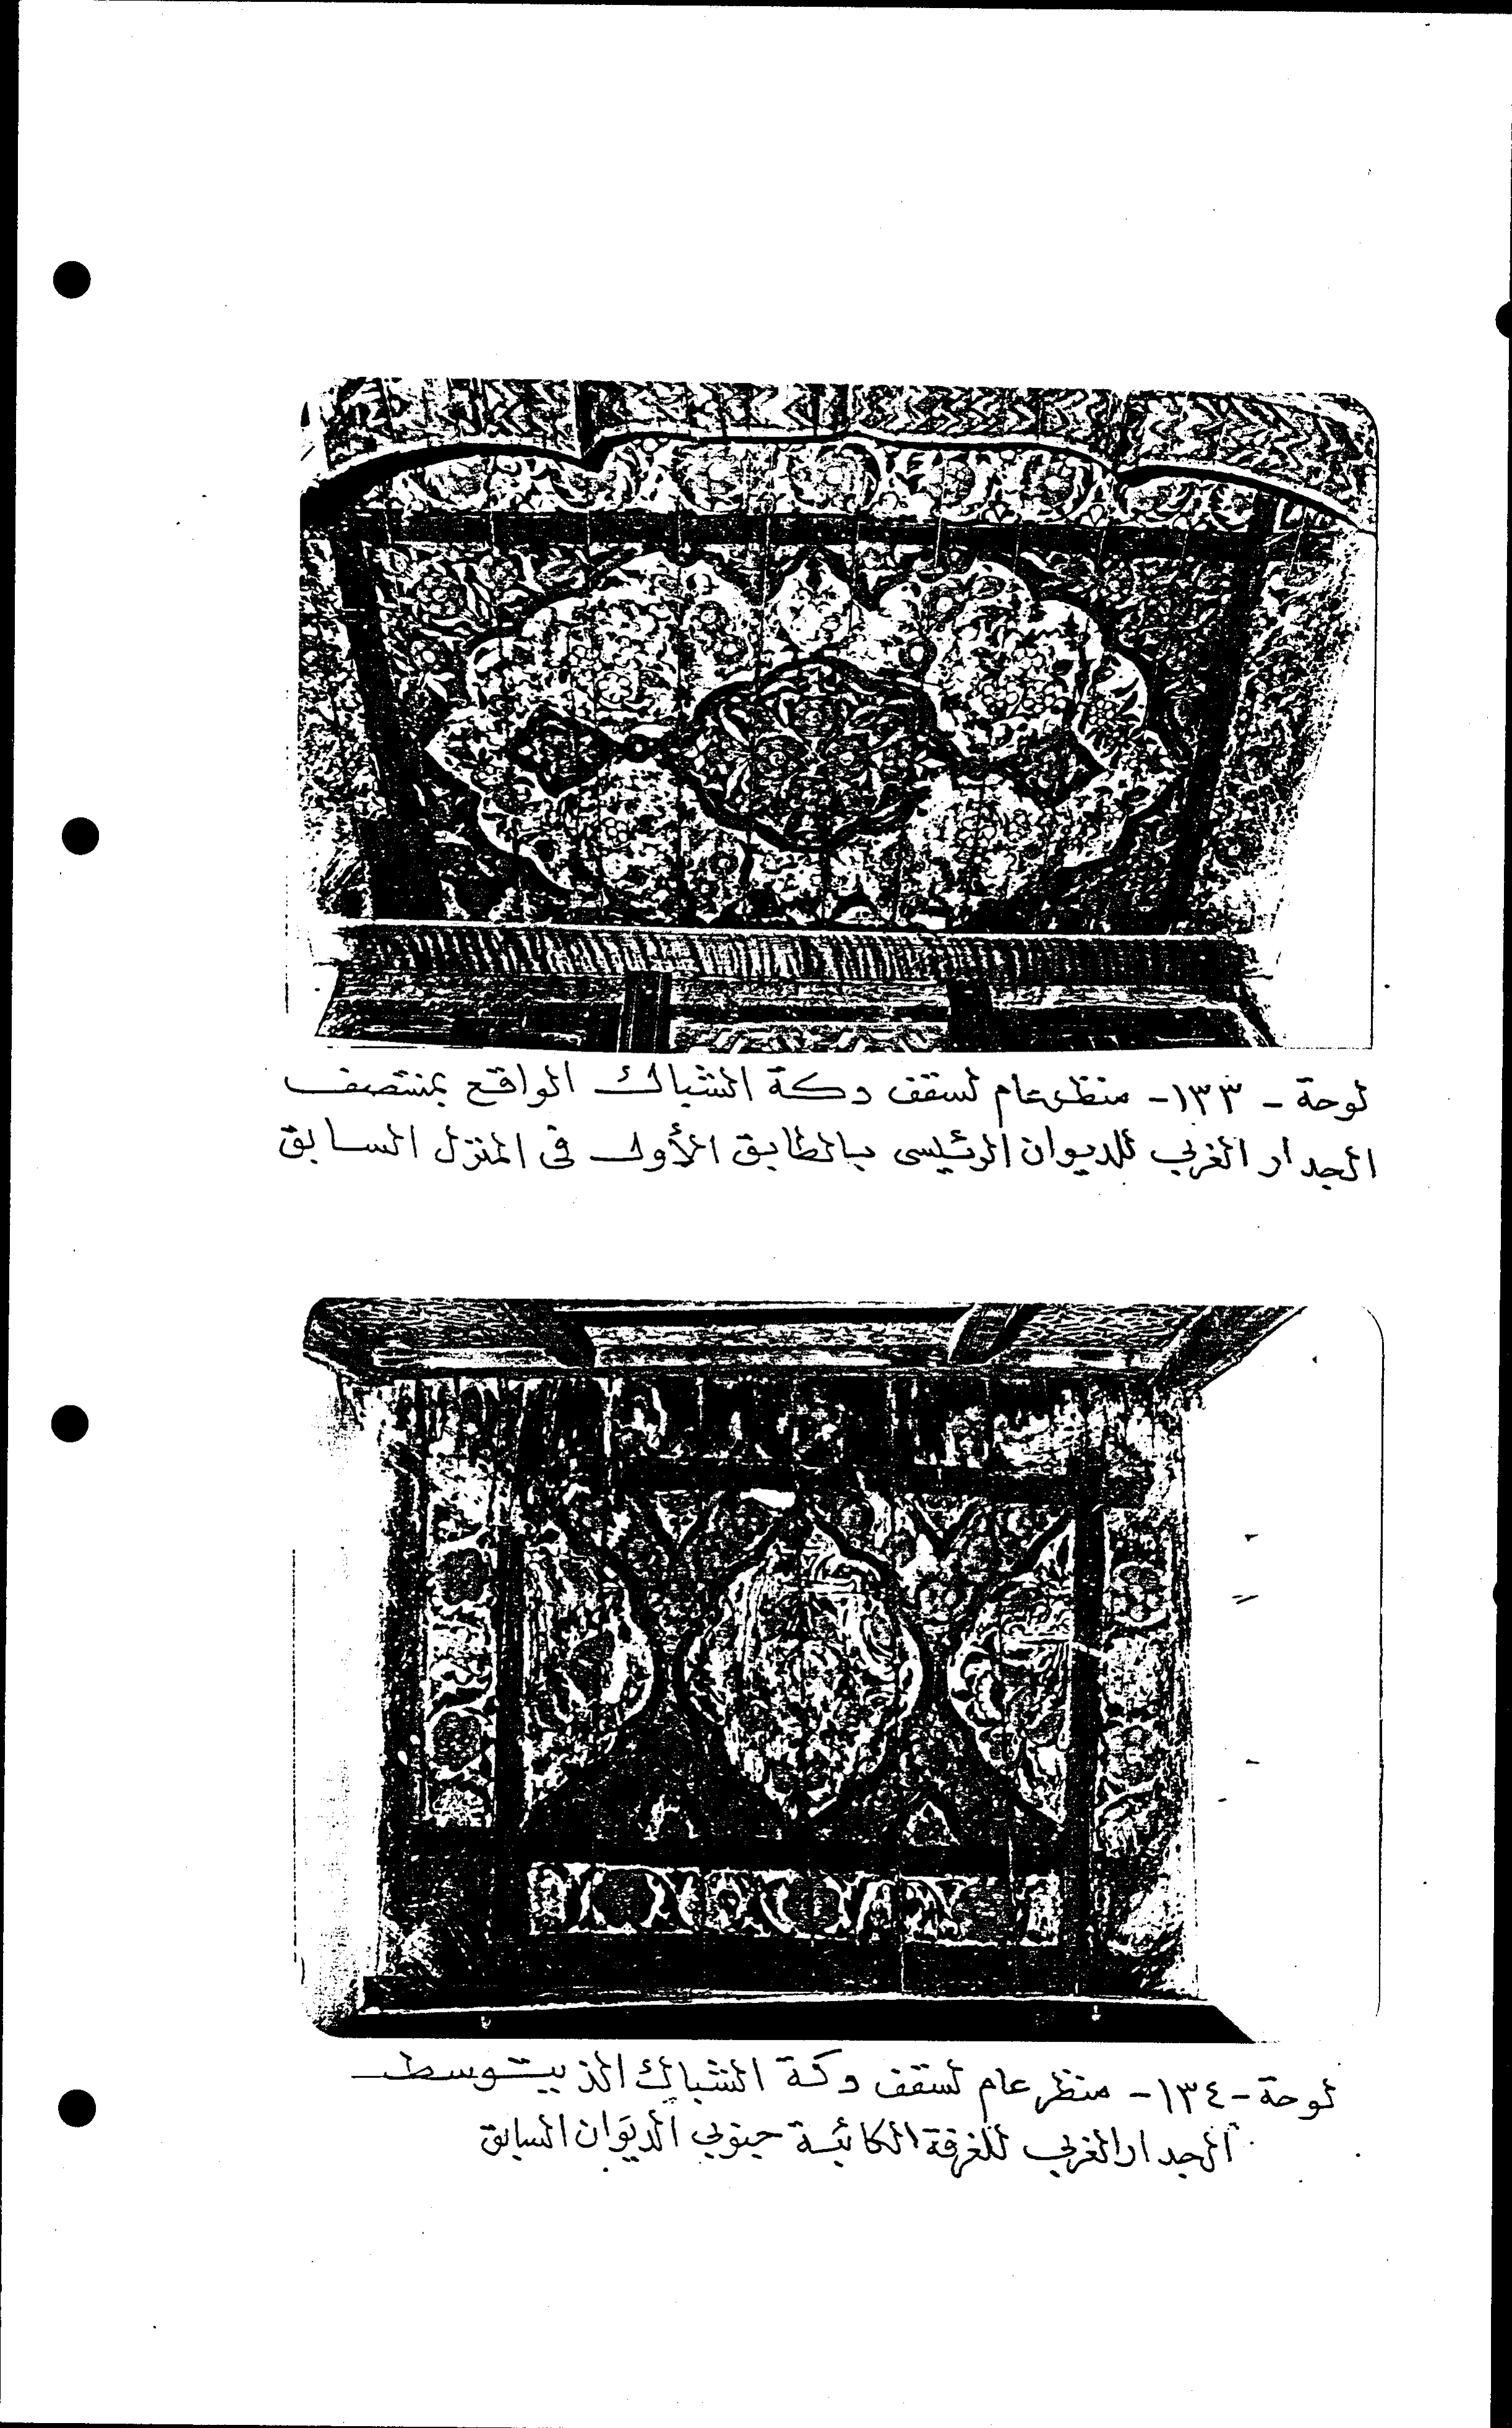 لوحة - ١٣٣ - منظر عام لسقف دكة الشباك الواقع بمنتصف
الجدار الغربي للديوان الرئيسى بالطابق الأول فى المنزل السابق
لوحة - ١٣٤ - منظر عام لسقف دكة الشباك الذ يتوسط
الجدار الغربي للغرفة الكائنة جنوبي الديوان السابق